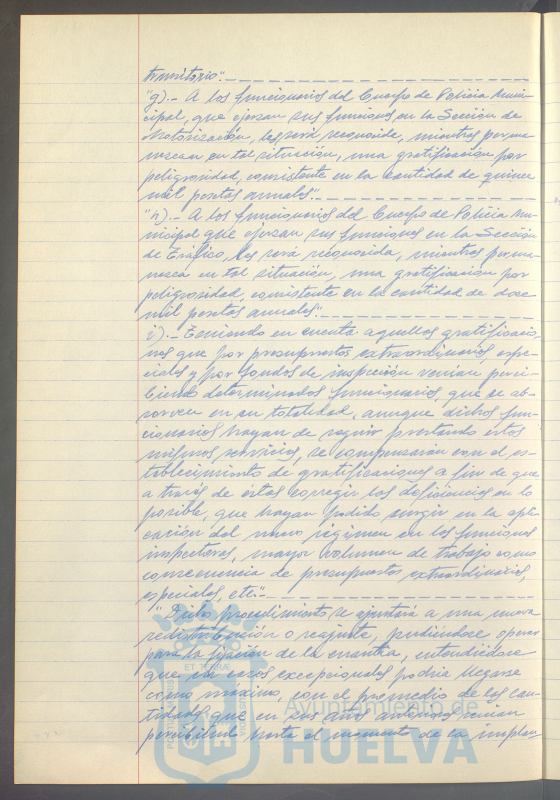 transitorio".
"g).- A los funcionarios del Cuerpo de Policía Muni-
cipal, que ejerzan sus funciones en la Sección de
Motorización, les será reconocida, mientras perma-
nezcan en tal situación, una gratificación por
peligrosidad, consistente en la cantidad de quince
mil pesetas anuales".
"h).- A los funcionarios del Cuerpo de Policía Mu-
nicipal que ejerzan sus funciones en la Sección
de Tráfico, les será reconocida, mientras perma-
nezca en tal situación, una gratificación por
peligrosidad, consistente en la cantidad de doce
mil pesetas anuales".
i).- Teniendo en cuenta aquellas gratificacio-
nes que por presupuestos extraordinarios, espe-
ciales y por fondos de inspección venían perci-
biendo determinados funcionarios, que se ab-
sorven en su totalidad, aunque dichos fun-
cionarios hayan de seguir prestando estos
mismos servicios, se compensarán con el es-
tablecimiento de gratificaciones a fin de que
a través de éstas corregir las deficiencias en lo
posible, que hayan podido surgir en la apli-
cación del nuevo régimen en las funciones
inspectoras, mayor volumen de trabajo como
consecuencia de presupuestos extraordinarios,
especiales, etc."-
"Dicho procedimiento se ajustará a una nueva
redistribución o reajuste, pudiéndose operar
para la fijación de la cuantía, entendiéndose
que en casos excepcionales podría llegarse
como máximo, con el promedio de las can-
tidades que en sus años anteriores venían
percibiendo hasta el momento de la implan-
PORTUS MARIS
ET TERRAE
CUSTODIA
Ayuntamiento de
HUELVA